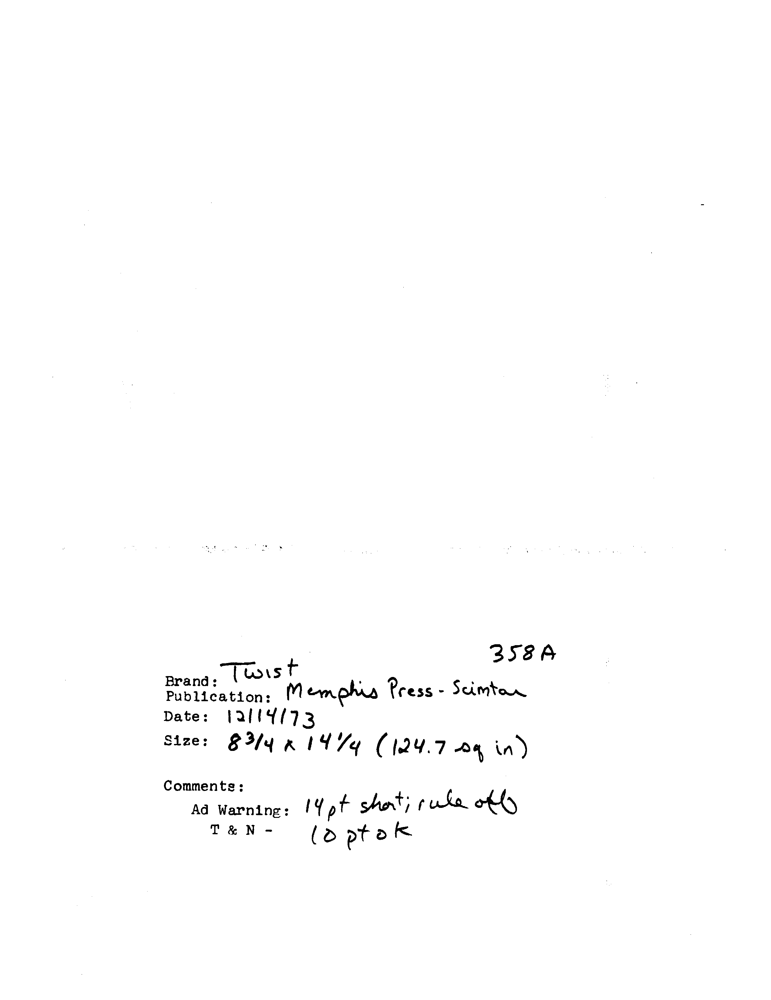 358A
Brand: Twist
Publication: Memphis Press-Scimtar
Date: 12/14/73
Size: 8 3/4 x 14 1/4 (124.7 sq in)
Comments:
Ad Warning: 14pt short; rule off
T & N - 10 pt ok